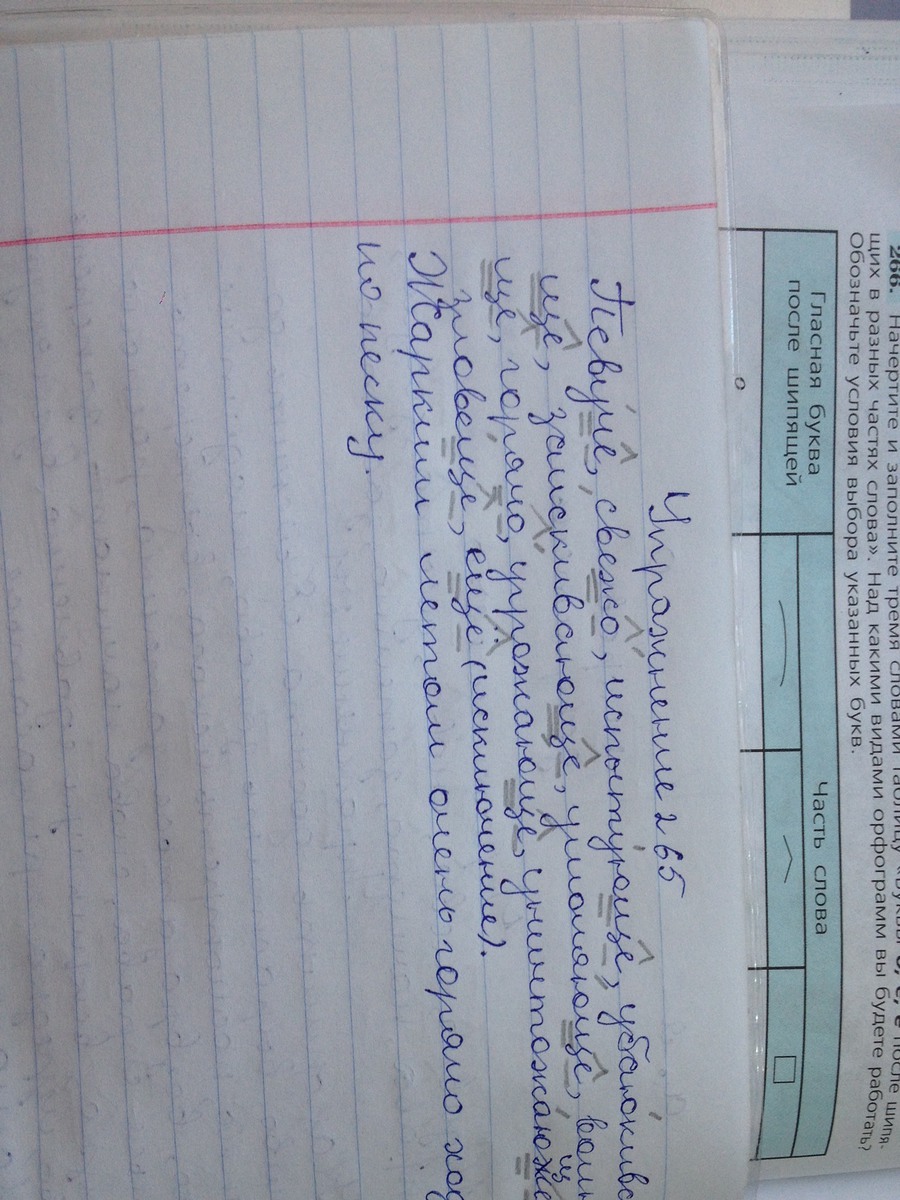 266. Начертите и заполните тремя словами таблицу «Буквы о, е, ё после шипя-
щих в разных частях слова». Над какими видами орфограмм вы будете работать?
Обозначьте условия выбора указанных букв.
Гласная буква
после шипящей
Часть слова
о
Упражнение 265
Певуче, свежо, испытующе, убаюкива
ще, заискивающе, умоляюще, волн
ще, горячо, угрожающе, уничтожающе
зловеще, ещё (исключение).
Жарким летом очень горячо ход
по песку.